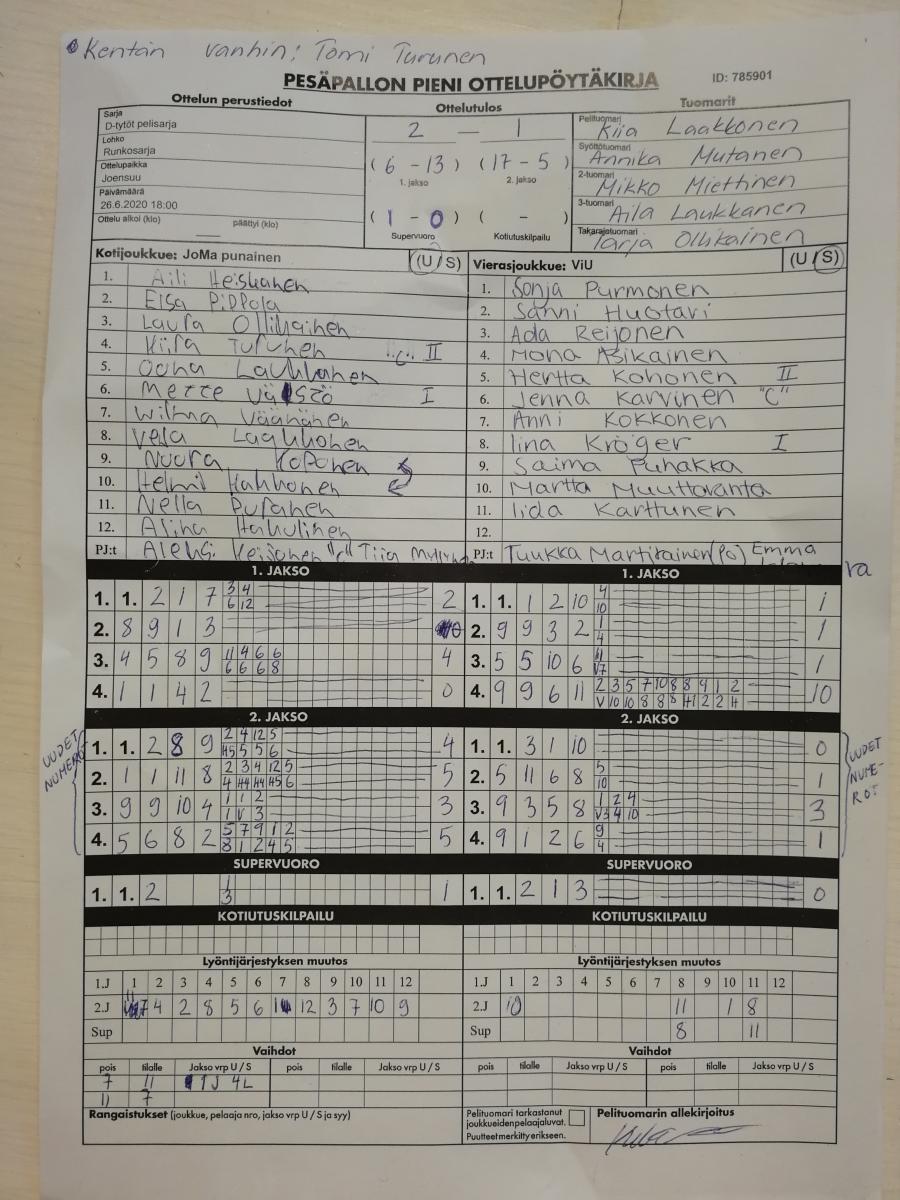 Kentän vanhin: Tomi Turunen
PESÄPALLON PIENI OTTELUPÖYTÄKIRJA
ID: 785901
Ottelun perustiedot
Sarja
D-tytöt pelisarja
Lohko
Runkosarja
Ottelupaikka
Joensuu
Päivämäärä
26.6.2020 18:00
Ottelu alkoi (klo) päättyi (klo)
Ottelutulos
2 — 1
(6 - 13) (17 - 5)
1. jakso 2. jakso
(1 - 0) ( - )
Supervuoro Kotiutuskilpailu
Tuomarit
Pelituomari
Kiia Laakkonen
Syöttötuomari
Annika Mutanen
2-tuomari
Mikko Miettinen
3-tuomari
Aila Laukkanen
Takarajatuomari
Tarja Ollikainen
Kotijoukkue: JoMa punainen (U / S)
1. Aili Heiskanen
2. Elsa Pippola
3. Laura Ollikainen
4. Kiira Turunen "C" II
5. Oona Laukkanen
6. Mette I
7. Wilma Väänänen
8. Laakkonen
9. Noora Koponen
10. Helmi Kakkonen
11. Nella
12.
PJ:t Aleksi "C" Tiia
Vierasjoukkue: ViU (U / S)
1. Sonja Purmonen
2. Sanni Huotari
3. Ada Reijonen
4. Mona Asikainen
5. Hertta Kohonen II
6. Jenna Karvinen "C"
7. Anni Kokkonen
8. Iina Kröger I
9. Saima Puhakka
10. Martta Muuttoranta
11. Iida Karttunen
12.
PJ:t Tuukka Martikainen (PJ) Emma
1. JAKSO
1. 1. 2 1 7 3 4 2
6 12
2. 8 9 1 3 0
3. 4 5 8 9 11 4 6 6 4
6 6 6 8
4. 1 1 4 2 0
1. JAKSO
1. 1. 1 2 10 4 1
10
2. 9 9 3 2 1 1
4
3. 5 5 10 6 11 1
V7
4. 9 9 6 11 2 3 5 7 10 8 8 9 1 2 10
UUDET NUMEROT
2. JAKSO
1. 1. 2 8 9 2 4 12 5 4
2. 1 1 11 8 2 3 4 12 5 5
3. 9 9 10 4 1 1 2 3
1 V 3
4. 5 6 8 2 5 7 9 1 2 5
8 1 2 4 5
2. JAKSO
1. 1. 3 1 10 0
2. 5 11 6 8 5 1
10
3. 9 3 5 8 1 2 4 3
V3 4 10
4. 9 1 2 6 9 1
4
UUDET NUME-ROT
SUPERVUORO
1. 1. 2 1 1
3
SUPERVUORO
1. 1. 2 1 3 0
KOTIUTUSKILPAILU
KOTIUTUSKILPAILU
Lyöntijärjestyksen muutos
1.J 1 2 3 4 5 6 7 8 9 10 11 12
2.J 4 2 8 5 6 12 3 7 10 9
Sup
Lyöntijärjestyksen muutos
1.J 1 2 3 4 5 6 7 8 9 10 11 12
2.J 10 11 1 8
Sup 8 11
Vaihdot
pois tilalle Jakso vrp U / S pois tilalle Jakso vrp U / S
7 11 1J 4L
11 7
Vaihdot
pois tilalle Jakso vrp U / S pois tilalle Jakso vrp U / S
Rangaistukset (joukkue, pelaaja nro, jakso vrp U / S ja syy)
Pelituomari tarkastanut
joukkueiden pelaajaluvat.
Puutteet merkitty erikseen.
Pelituomarin allekirjoitus